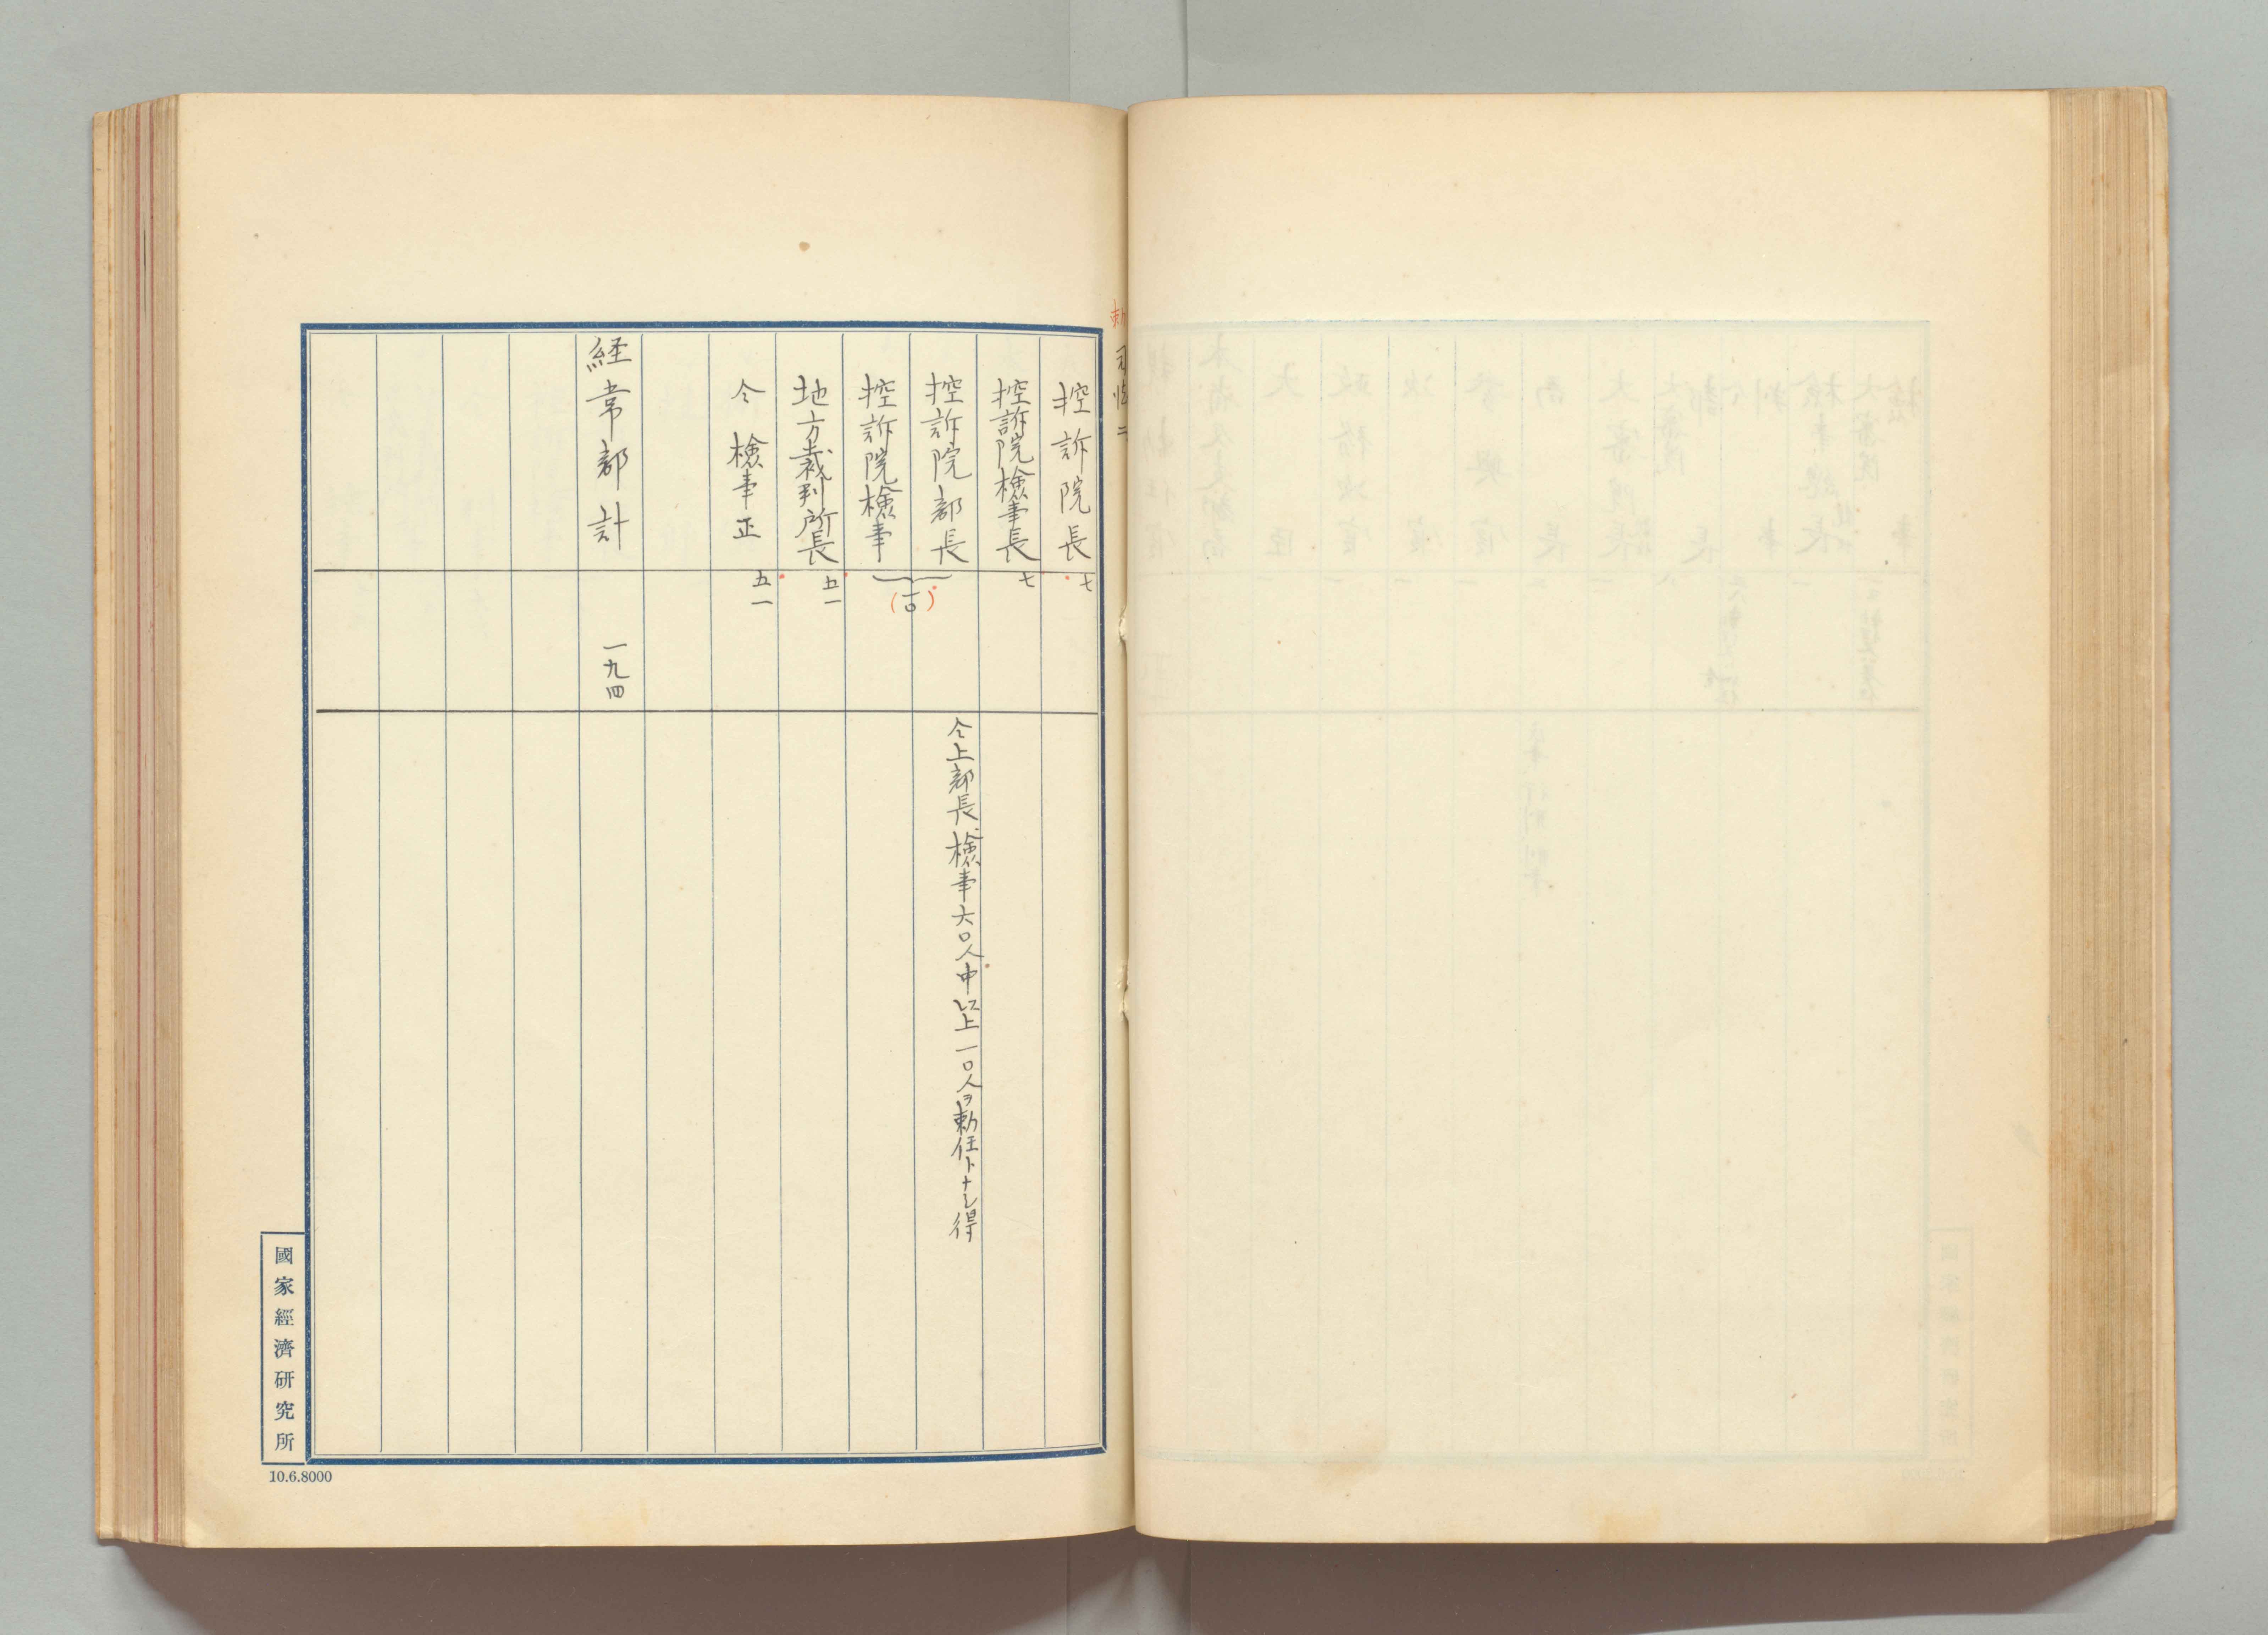 勅
司法二
控訴院長 七
控訴院検事長 七
控訴院部長
控訴院検事
(一〇)
仝上部長検事六〇人中以上一〇人ヲ勅任トナシ得
地方裁判所長 五一
仝検事正 五一
経常部計 一九四
國家經濟研究所
10.6.8000